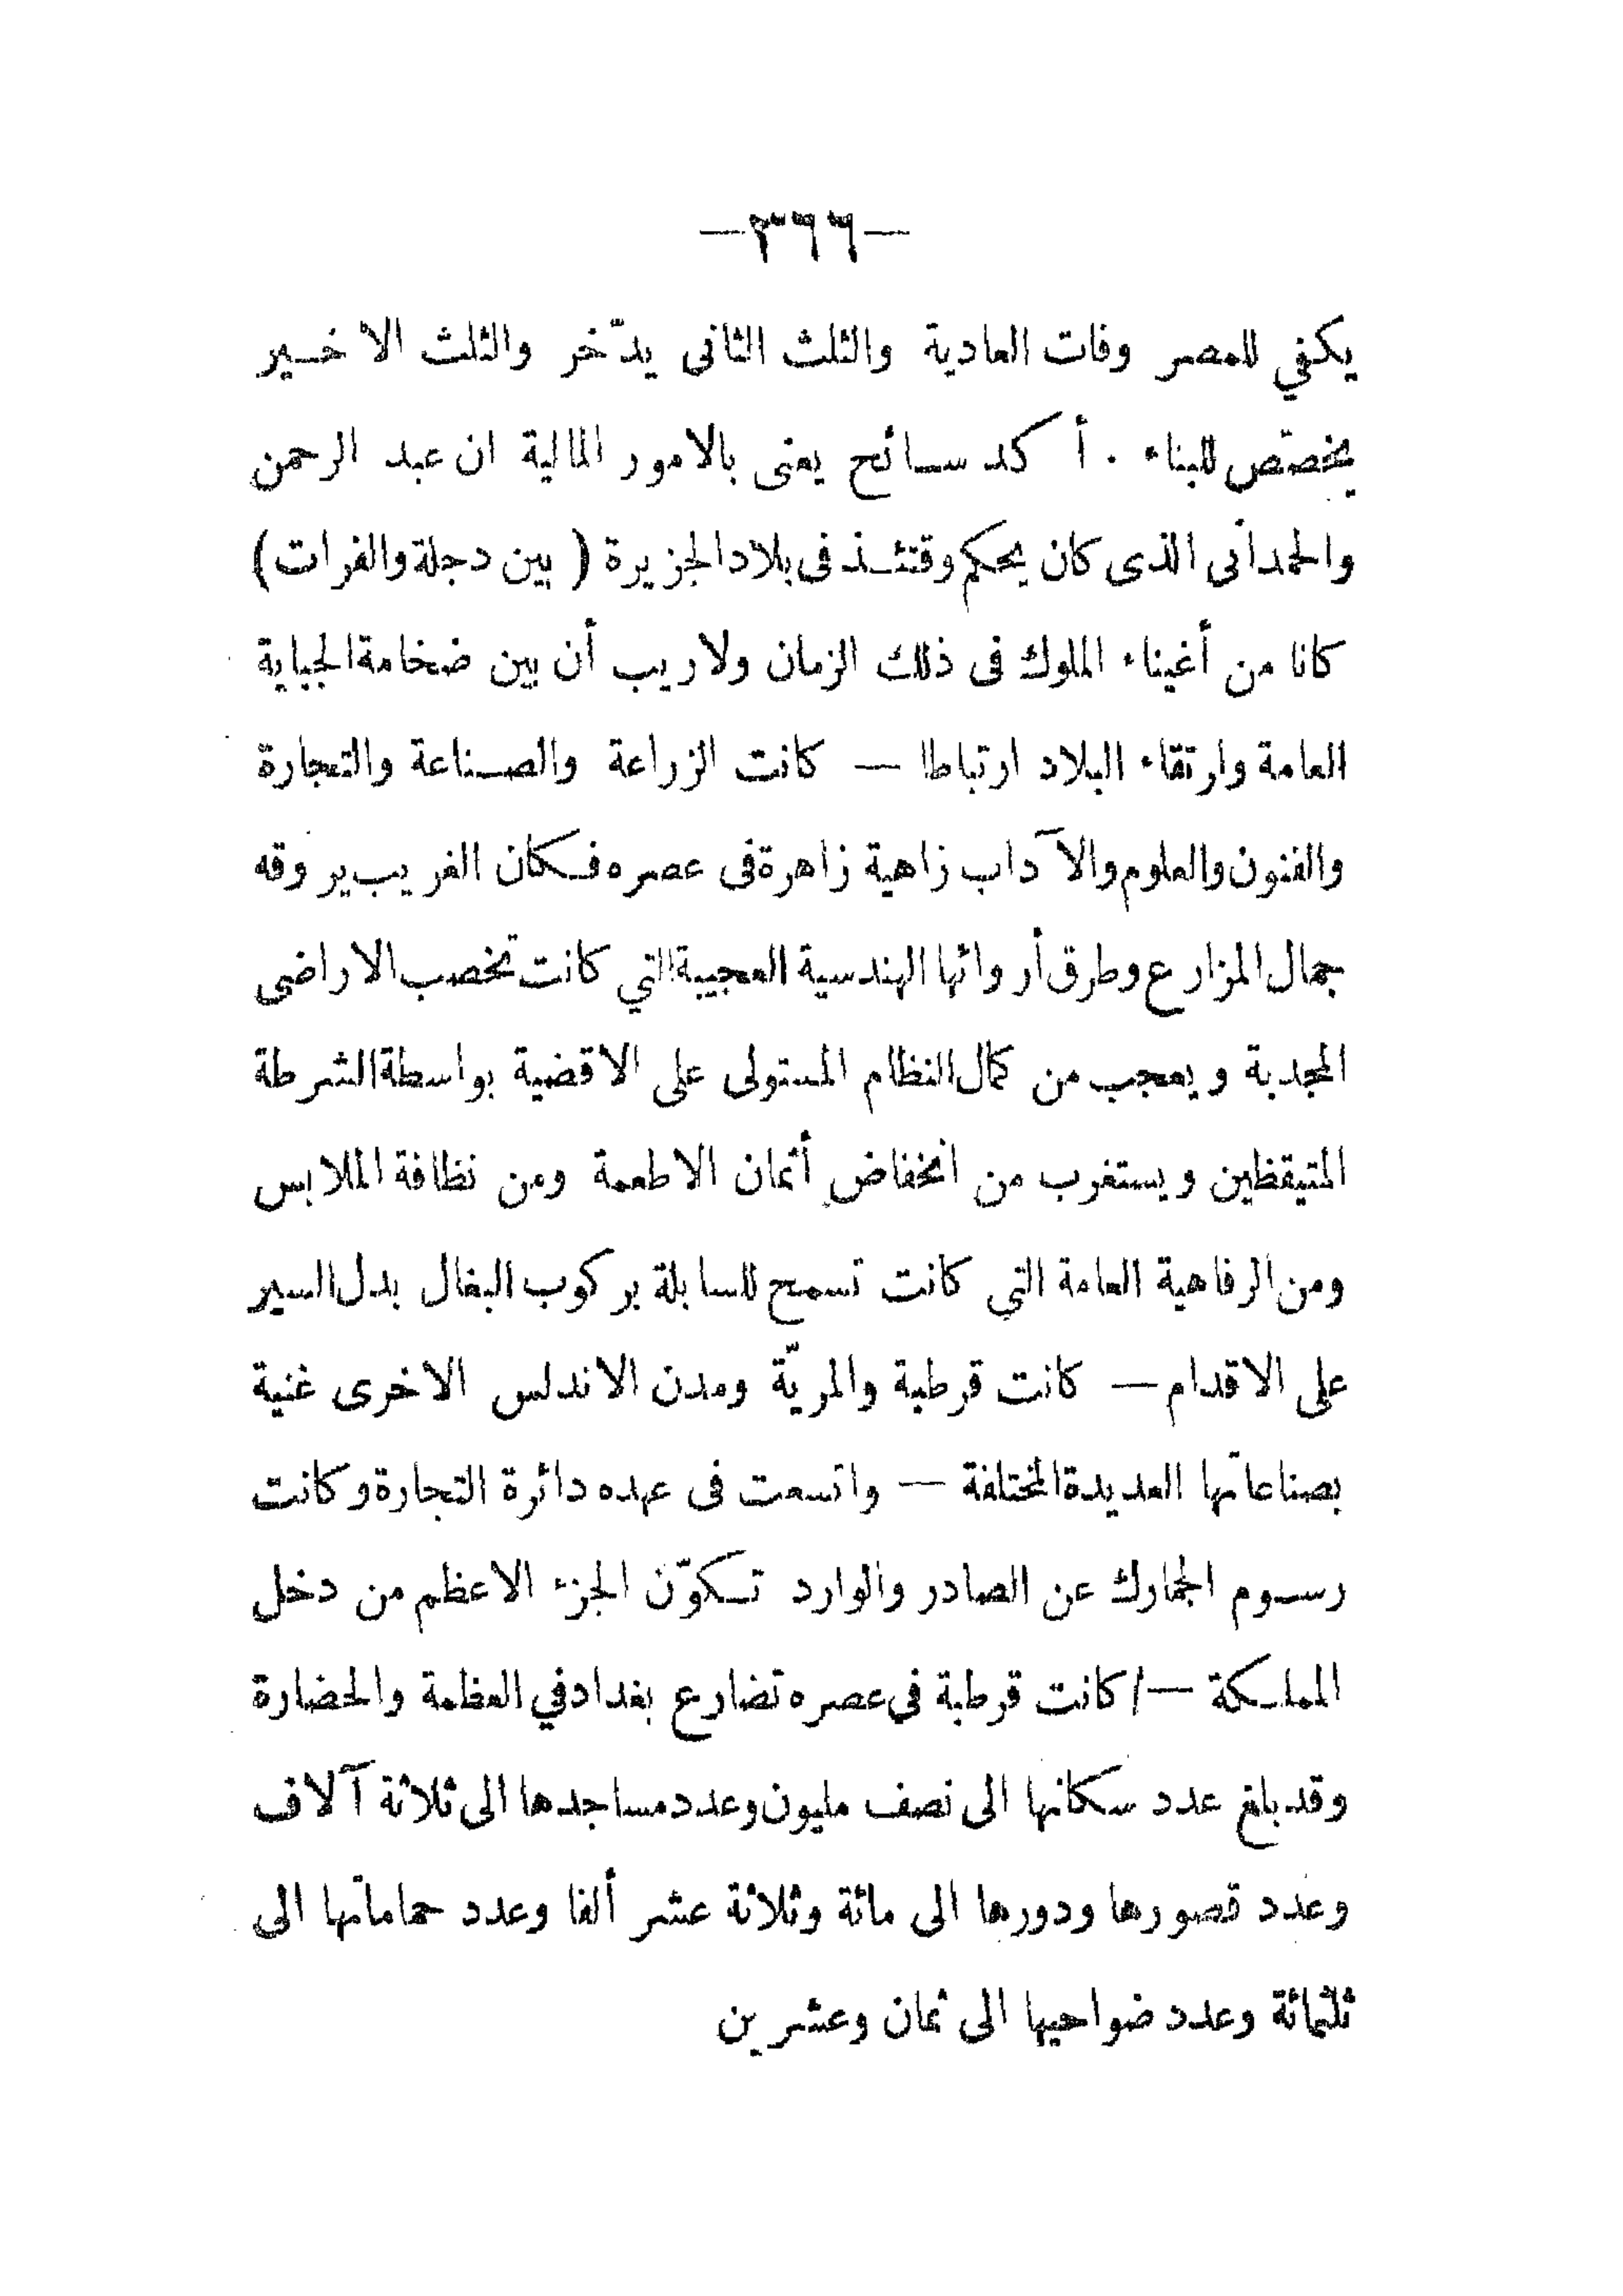 —٣٦٦—
يكفي للمصر وفات العادية والثلث الثانى يدّخر والثلث الاخسير
يخصّص للبناء . أكد سائح يعنى بالامور المالية ان عبد الرحمن
والحمدانى الذى كان يحكم وقتئذ فى بلاد الجزيرة ( بين دجلة والفرات )
كانا من أغنياء الملوك فى ذلك الزمان ولا ريب أن بين ضخامة الجباية
العامة وارتقاء البلاد ارتباطا — كانت الزراعة والصناعة والتجارة
والفنون والعلوم والآداب زاهية زاهرة فى عصره فكان الغريب يروقه
جمال المزارع وطرق أروائها الهندسية العجيبة التي كانت تخصب الاراضى
المجدبة ويعجب من كمال النظام المستولى على الاقضية بواسطة الشرطة
المتيقظين ويستغرب من انخفاض أثمان الاطعمة ومن نظافة الملابس
ومن الرفاهية العامة التي كانت تسمح للسابلة بركوب البغال بدل السير
على الاقدام — كانت قرطبة والمريّة ومدن الاندلس الاخرى غنية
بصناعاتها العديدة المختلفة — واتسعت فى عهده دائرة التجارة وكانت
رسوم الجمارك عن الصادر والوارد تكوّن الجزء الاعظم من دخل
المملكة — / كانت قرطبة في عصره تضارع بغداد في العظمة والحضارة
وقد بلغ عدد سكانها الى نصف مليون وعدد مساجدها الى ثلاثة آلاف
وعدد قصورها ودورها الى مائة وثلاثة عشر ألفا وعدد حماماتها الى
ثلثمائة وعدد ضواحيها الى ثمان وعشرين